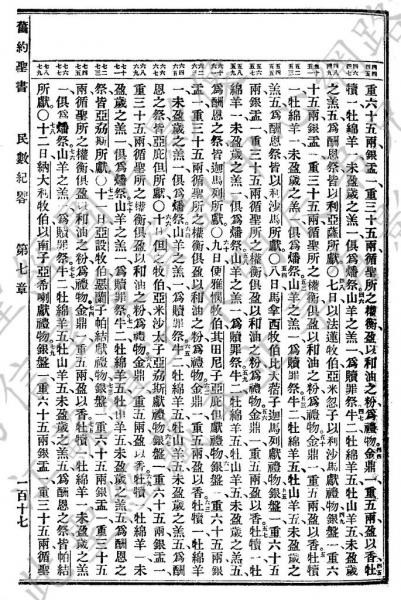 重六十五兩銀盂一重三十五兩循聖所之權衡盈以和油之粉爲禮物金鼎一重五兩盈以香牡
犢一牡綿羊一未盈歲之羔一俱爲燔祭山羊之羔一爲贖罪祭牛二牡綿羊五牡山羊五未盈歲
之羔五爲酬恩之祭皆以利亞薩所獻〇七日以法蓮牧伯亞米忽子以利沙馬獻禮物銀盤一重
六十五兩銀盂一重三十五兩循聖所之權衡盈以和油之粉爲禮物金鼎一重五兩盈以香牡犢
一牡綿羊一未盈歲之羔一俱爲燔祭山羊之羔一爲贖罪祭牛二牡綿羊五牡山羊五未盈歲之
羔五爲酬恩之祭皆以利沙馬所獻〇八日馬拿西牧伯比大子迦馬列獻禮物銀盤一重六十五
兩銀盂一重三十五兩循聖所之權衡盈以和油之粉爲禮物金鼎一重五兩盈以香牡犢一牡
綿羊一未盈歲之羔一俱爲燔祭山羊之羔一爲贖罪祭牛二牡綿羊五牡山羊五未盈歲之羔五
爲酬恩之祭皆迦馬列所獻〇九日便雅憫牧伯其田尼子亞庇但獻禮物銀盤一重六十五兩銀
盂一重三十五兩循聖所之權衡盈以和油之粉爲禮物金鼎一重五兩盈以香牡犢一牡綿羊
一未盈歲之羔一俱爲燔祭山羊之羔一爲贖罪祭牛二牡綿羊五牡山羊五未盈歲之羔五爲酬
恩之祭皆亞庇但所獻〇十日但之牧伯亞米沙太子亞荔斯獻禮物銀盤一重六十五兩銀盂一
重三十五兩循聖所之權衡盈以和油之粉爲禮物金鼎一重五兩盈以香牡犢一牡綿羊一未
盈歲之羔一俱爲燔祭山羊之羔一爲贖罪祭牛二牡綿羊五牡山羊五未盈歲之羔五爲酬恩之
祭皆亞荔斯所獻〇十一日亞設牧伯惡蘭子帕結獻禮物銀盤一重六十五兩銀盂一重三十五
兩循聖所之權衡盈以和油之粉爲禮物金鼎一重五兩盈以香牡犢一牡綿羊一未盈歲之羔
一俱爲燔祭山羊之羔一爲贖罪祭牛二牡綿羊五牡山羊五未盈歲之羔五爲酬恩之祭皆帕結
所獻〇十二日納大利牧伯以南子亞希喇獻禮物銀盤一重六十五兩銀盂一重三十五兩循聖
舊約聖書 民數紀畧 第七章 一百十七